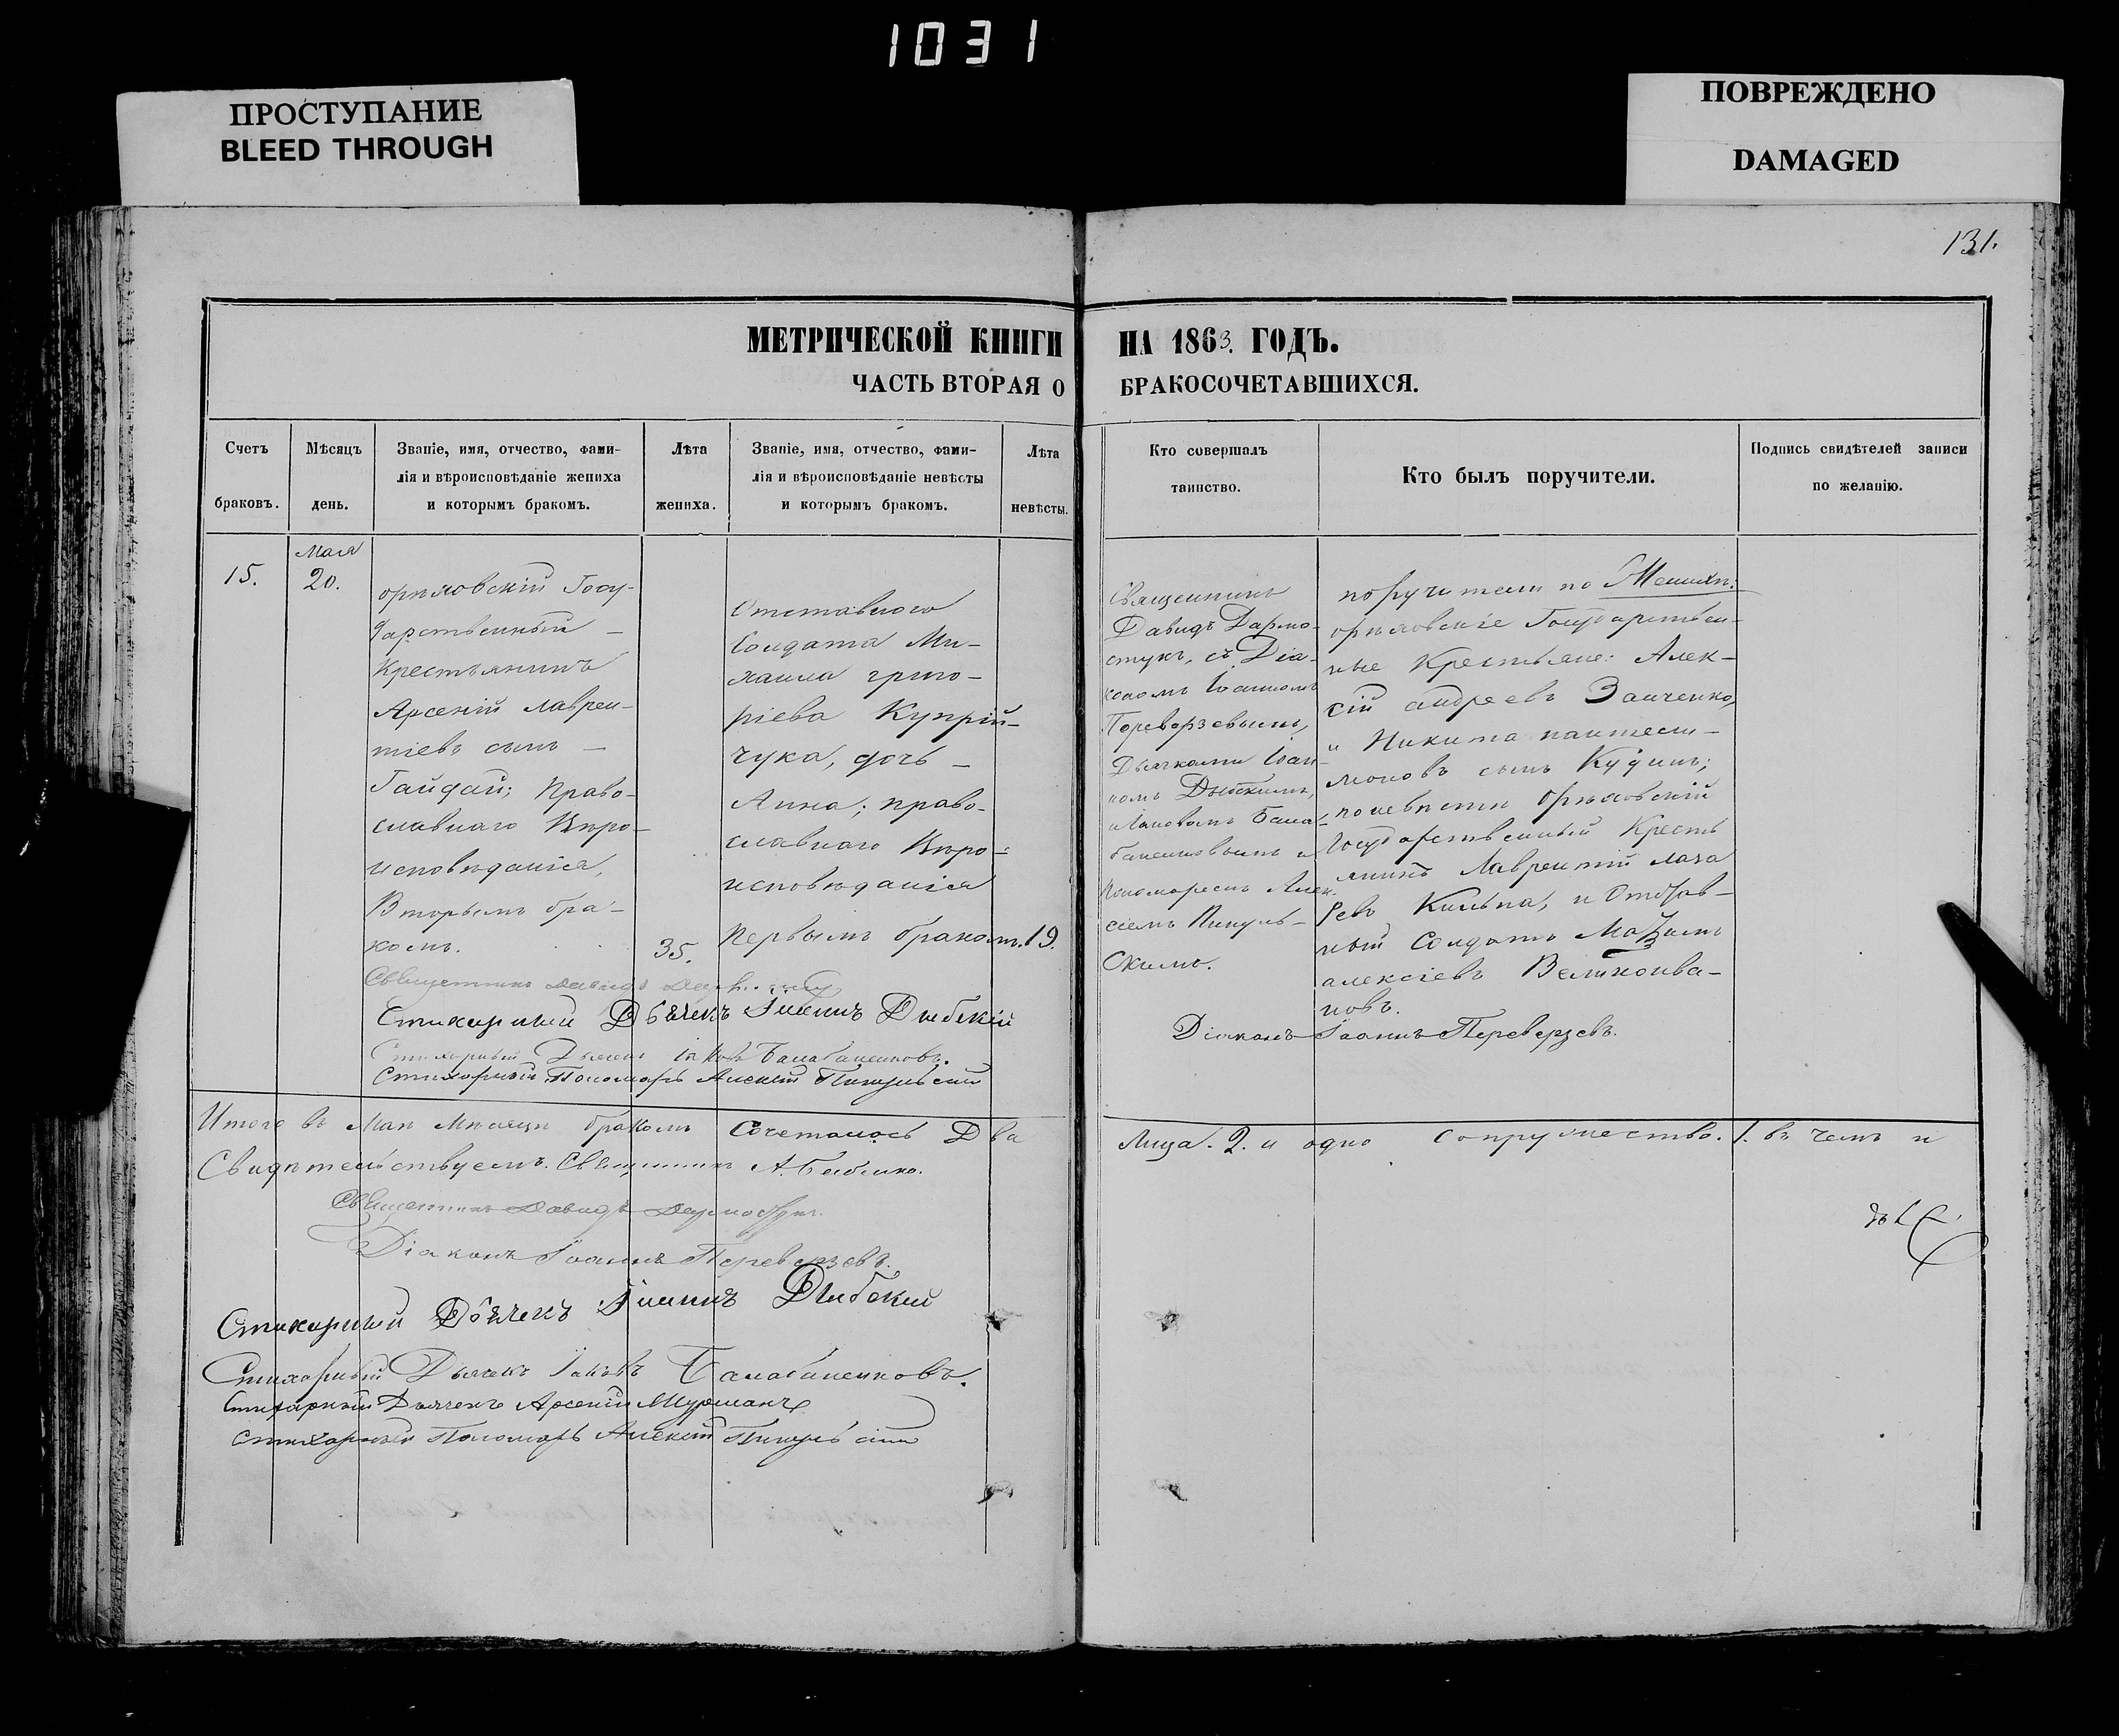 1031
ПРОСТУПАНИЕ
BLEED THROUGH
ПОВРЕЖДЕНО
DAMAGED
131.
МЕТРИЧЕСКОЙ КНИГИ НА 1863. ГОДЪ.
ЧАСТЬ ВТОРАЯ О БРАКОСОЧЕТАВШИХСЯ.
Счетъ
браковъ.
Мѣсяцъ
день.
Званіе, имя, отчество, фами-
лія и вѣроисповѣданіе жениха
и которымъ бракомъ.
Лѣта
жениха.
Званіе, имя, отчество, фами-
лія и вѣроисповѣданіе невѣсты
и которымъ бракомъ.
Лѣта
невѣсты.
Кто совершалъ
таинство.
Кто былъ поручители.
Подпись свидѣтелей записи
по желанію.
15.
Мая
20.
орѣховскій Госу-
дарственный
Крестьянинъ
Арсеній Лаврен-
тіевъ сынъ
Гайдай; Право-
славнаго Вѣро-
исповѣданія,
Вторымъ бра-
комъ.
35.
Отставного
Солдата Ми-
хаила Григо-
ріева Купрій-
чука, дочь
Анна; право-
славнаго Вѣро-
исповѣданія
Первымъ бракомъ.
19.
Священникъ
Давидъ
съ Діа-
кономъ Іоанномъ
Переверзевымъ,
Дьячками Іоан-
номъ
Іаковомъ Бала-
баненковымъ и
Пономаремъ Алек-
сіемъ Пикуль-
скимъ.
поручители по Женихѣ:
орѣховскіе Государствен-
ные Крестьяне: Алек-
сій Андреевъ Заиченко,
и Никита пантеле-
моновъ сынъ Кудинъ;
по невѣсты Орѣховскій
Государственный Кресть
янинъ Лаврентій Лаза
ревъ и Отстав-
ной Солдатъ Мазимъ
алексіевъ Великоива-
новъ.
Діаконъ Іоаннъ Переверзевъ.
Священникъ Давидъ
Стихарный Дьячекъ Іоаннъ
Стихарный Дьячекъ Іаковъ Балабаненковъ.
Стихарный Пономарь Алексій Пикульскій
Итого въ Маѣ Мѣсяцѣ бракомъ Сочеталось Два Лица. 2. и одно Супружество. 1. въ чемъ и
Свидѣтельствуемъ. Священникъ А.
Священникъ Давидъ
Діаконъ Іоаннъ Переверзевъ.
Стихарный Дьячекъ Іоаннъ
Стихарный Дьячекъ Іаковъ Балабаненковъ.
Стихарный Дьячекъ Арсеній
Стихарный Пономарь Алексій Пикульскій